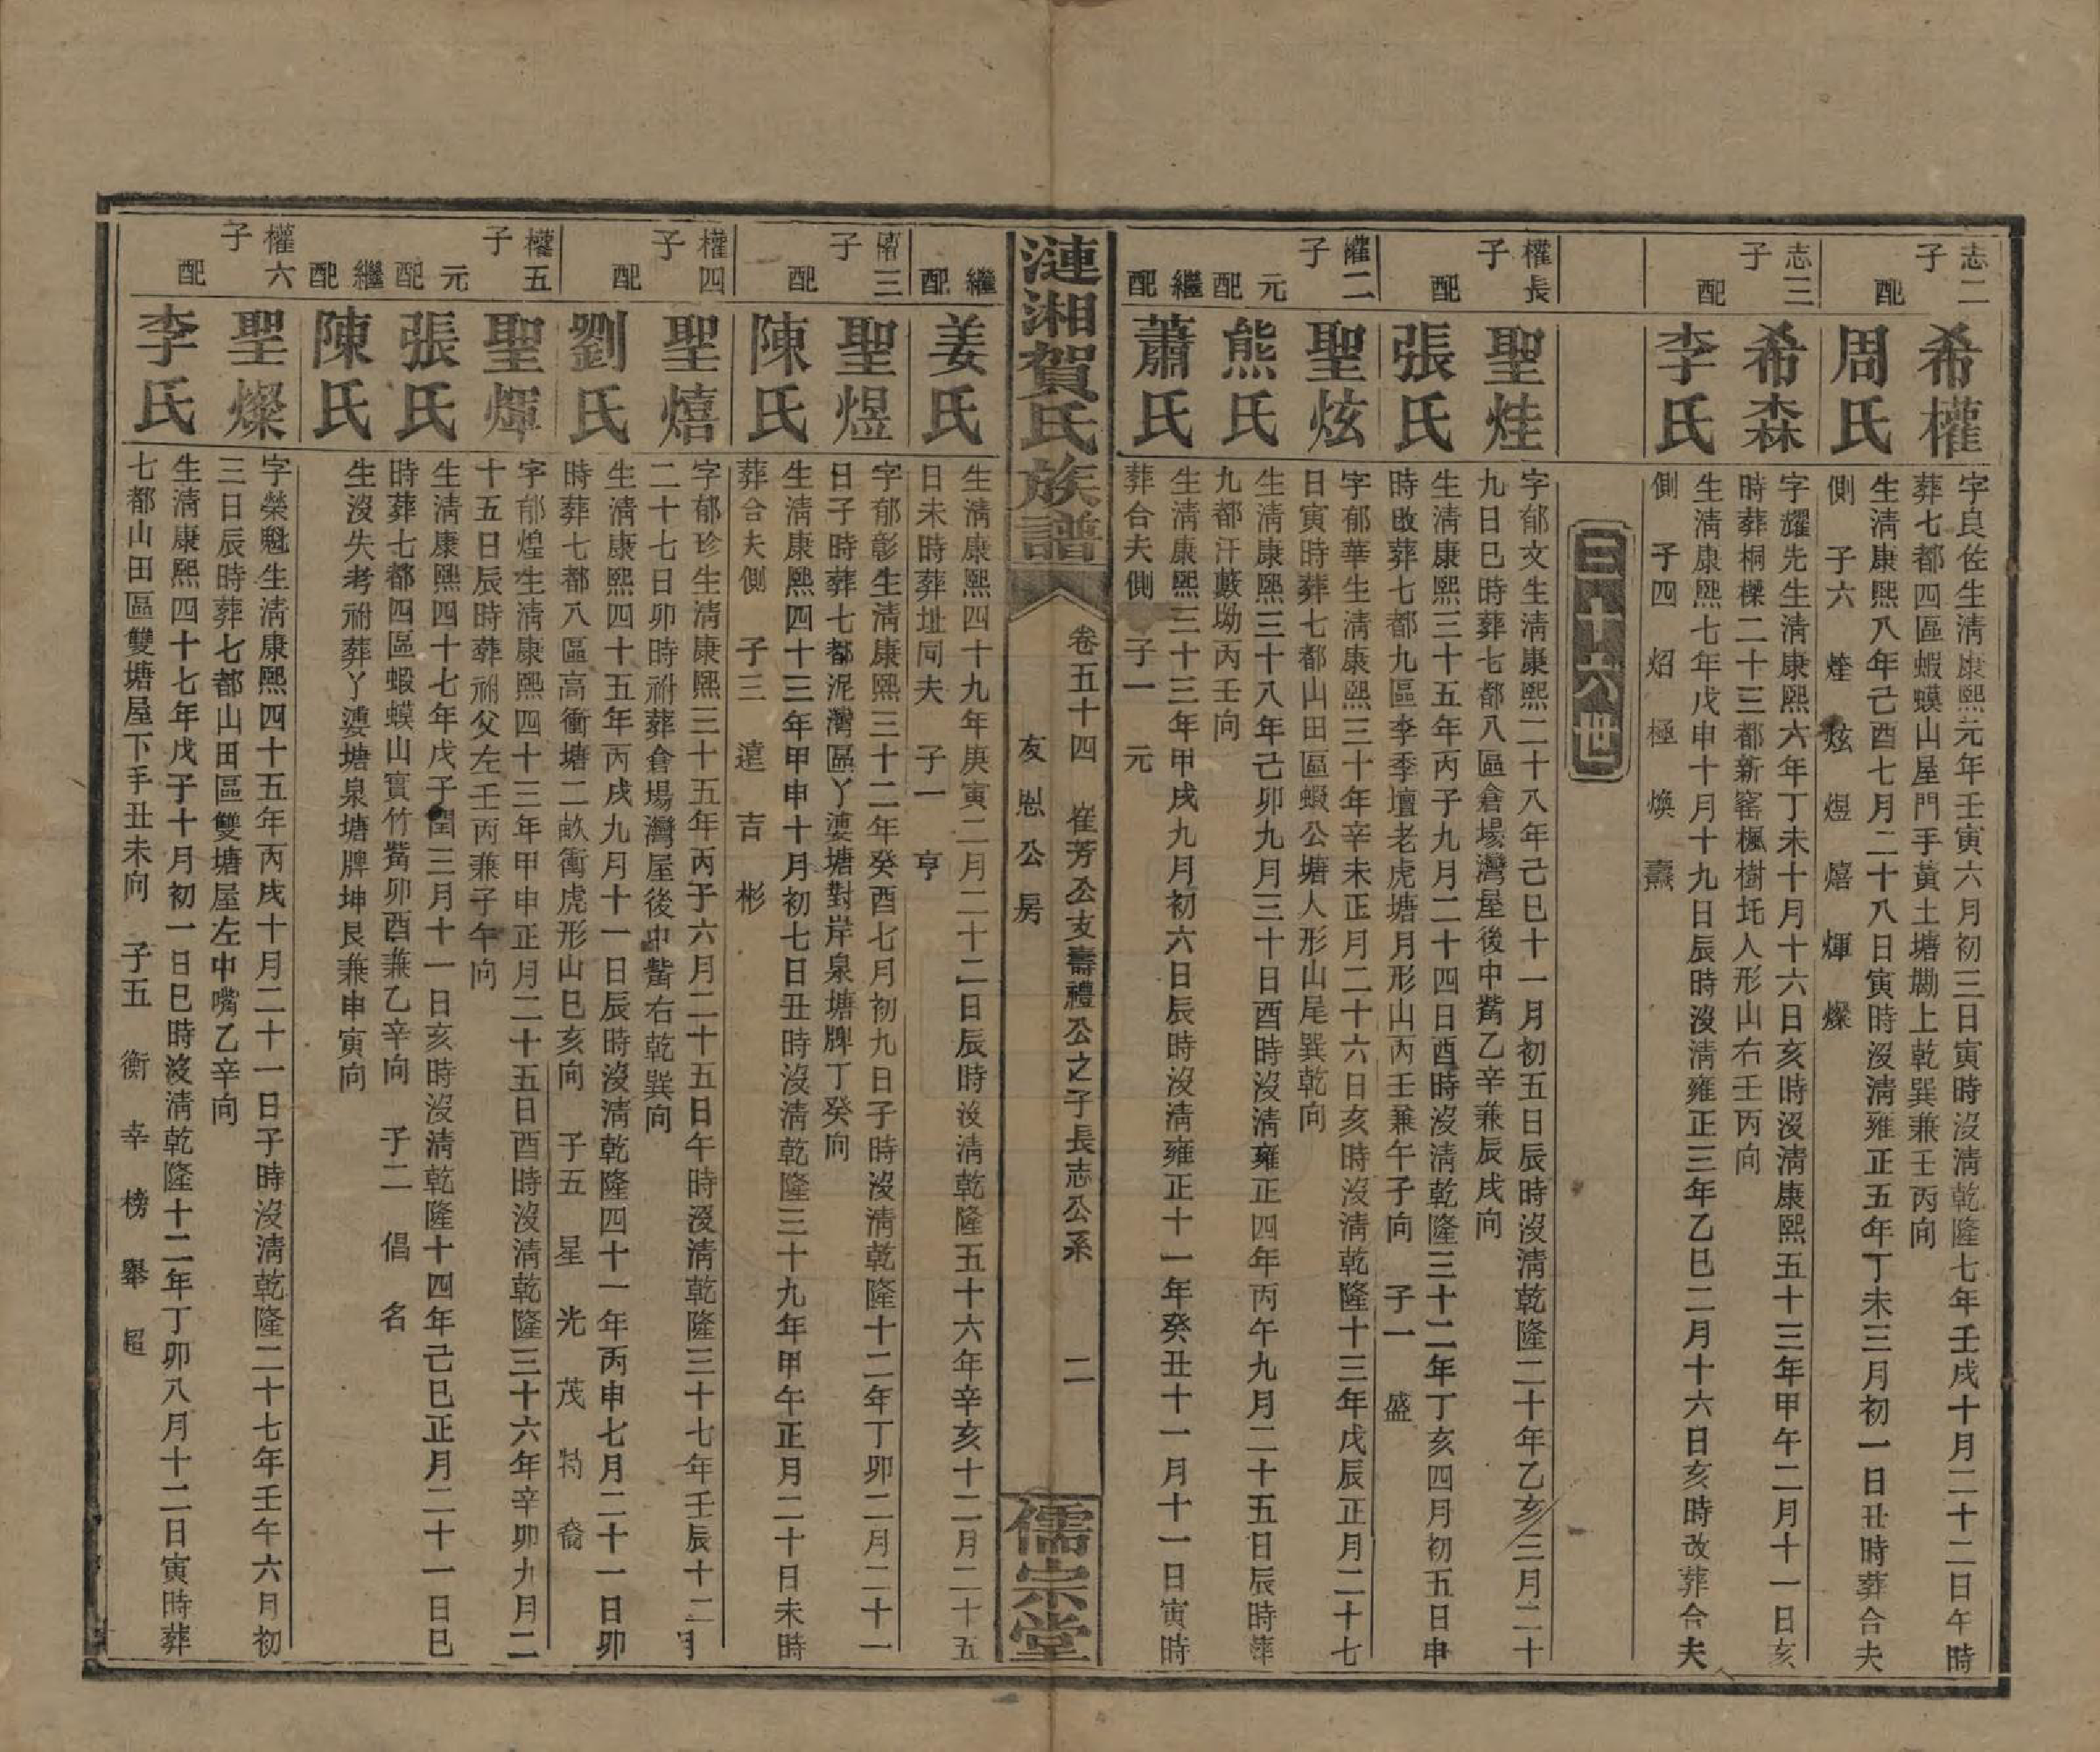 志二子
希權
字良佐生清康熙元年壬寅六月初三日寅時沒清乾隆七年壬戌十月二十二日午時
葬七都四區蝦蟆山屋門手黃土塘墈上乾巽兼壬丙向
配
周氏
生清康熙八年己酉七月二十八日寅時沒清雍正五年丁未三月初一日丑時葬合夫
側 子六 烓 炫 煜 熺 煇 燦
志三子
希森
字耀先生清康熙六年丁未十月十六日亥時沒清康熙五十三年甲午二月十一日亥
時葬桐樑二十三都新窑楓樹圫人形山右壬丙向
配
李氏
生清康熙七年戊申十月十九日辰時沒清雍正三年乙巳二月十六日亥時改葬合夫
側 子四 炤 極 煥 燾
三十六世
權長子
聖烓
字郁文生清康熙二十八年己巳十一月初五日辰時沒清乾隆二十年乙亥三月二十
九日巳時葬七都八區倉場灣屋後中觜乙辛兼辰戌向
配
張氏
生清康熙三十五年丙子九月二十四日酉時沒清乾隆三十二年丁亥四月初五日申
時改葬七都九區李李壇老虎塘月形山丙壬兼午子向 子一 盛
權二子
聖炫
字郁華生清康熙三十年辛未正月二十六日亥時沒清乾隆十三年戊辰正月二十七
日寅時葬七都山田區蝦公塘人形山尾巽乾向
元配
熊氏
生清康熙三十八年己卯九月三十日酉時沒清雍正四年丙午九月二十五日辰時葬
九都汗藪坳丙壬向
繼配
蕭氏
生清康熙三十三年甲戌九月初六日辰時沒清雍正十一年癸丑十一月十一日寅時
葬合夫側 子一 元
漣湘賀氏族譜
卷五十四 崔芳公支壽禮公之子長志公系 二
友恕公房
儒宗堂
繼配
姜氏
生清康熙四十九年庚寅二月二十二日辰時沒清乾隆五十六年辛亥十二月二十五
日未時葬址同夫 子一 亨
權三子
聖煜
字郁彰生清康熙三十二年癸酉七月初九日子時沒清乾隆十二年丁卯二月二十一
日子時葬七都泥灣區丫漊塘對岸泉塘牌丁癸向
配
陳氏
生清康熙四十三年甲申十月初七日丑時沒清乾隆三十九年甲午正月二十日未時
葬合夫側 子三 達 吉 彬
權四子
聖熺
字郁珍生清康熙三十五年丙子六月二十五日午時沒清乾隆三十七年壬辰十二月
二十七日卯時祔葬倉場灣屋後中觜右乾巽向
配
劉氏
生清康熙四十五年丙戌九月十一日辰時沒清乾隆四十一年丙申七月二十一日卯
時葬七都八區高衝塘二畝衝虎形山巳亥向 子五 星 光 茂 特 裔
權五子
聖煇
字郁煌生清康熙四十三年甲申正月二十五日酉時沒清乾隆三十六年辛卯九月二
十五日辰時葬祔父左壬丙兼子午向
元配
張氏
生清康熙四十七年戊子閏三月十一日亥時沒清乾隆十四年己巳正月二十一日巳
時葬七都四區蝦蟆山實竹觜卯酉兼乙辛向 子二 倡 名
繼配
陳氏
生沒失考祔葬丫漊塘泉塘牌坤艮兼申寅向
權六子
聖燦
字榮魁生清康熙四十五年丙戌十月二十一日子時沒清乾隆二十七年壬午六月初
三日辰時葬七都山田區雙塘屋左中嘴乙辛向
配
李氏
生清康熙四十七年戊子十月初一日巳時沒清乾隆十二年丁卯八月十二日寅時葬
七都山田區雙塘屋下手丑未向 子五 衡 幸 榜 舉 超